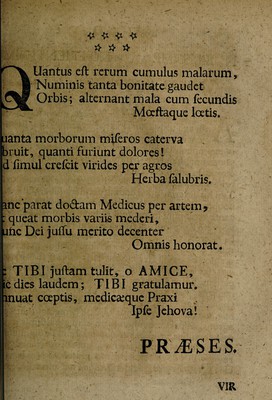 QUantus est rerum cumulus malarum,
Numinis tanta bonitate gaudet
Orbis; alternant mala cum secundis
Mœstaque lœtis.
uanta morborum miseros caterva
bruit, quanti furiunt dolores!
d simul crescit virides per agros
Herba salubris.
anc parat doctam Medicus per artem,
queat morbis variis mederi,
unc Dei jussu merito decenter
Omnis honorat.
TIBI justam tulit, o AMICE,
ic dies laudem; TIBI gratulamur.
nnuat cœptis, medicæque Praxi
Ipse Jehova!
PRÆSES.
VIR